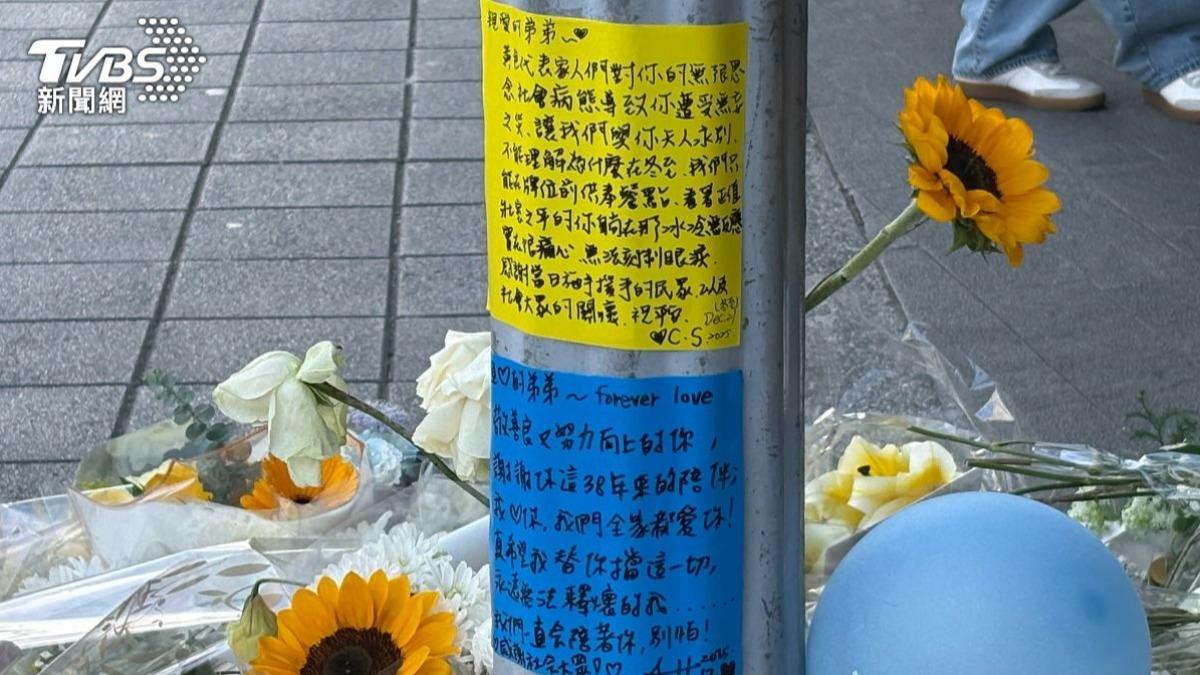 TVBS
新聞網
親愛的弟弟~♥
謹代表家人們對你的無限思
念社會病態導致你遭受無妄
之災、讓我們與你天人永別、
不能理解為什麼在冬至、我們只
能在牌位前供奉餐點、看著正值
壯年的你躺在那冰冷無回應
實在很痛心 無法刻制眼淚、
感謝當日施手援手的民眾、以及
社會大眾的關懷、祝平安、
(冬至)
Dec.21
♥C.S.2025.
♡的弟弟~forever love
善良又努力向上的你,
謝謝你這38年來的陪伴;
我♡你,我們全家都愛你!
真希望我替你擋這一切,
永遠無法釋懷的我......
我們一直會陪著你,別怕!
感謝社會大眾!♡
2025